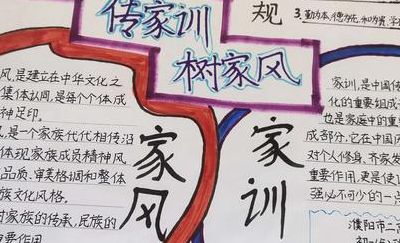 传家训
树家风
规
3.勤为本,德为先,和为贵,学
风,是建立在中华文化之
集体认同,是每个个体成
神足印。
,是一个家族代代相传沿
体现家族成员精神风
品质、审美格调和整体
族文化风格。
对家族的传承,民族的
重要作用
家风
家训
家训,是中国传
化的重要组成
也是家庭中的重
成部分,它在中国历
对个人修身、齐家发
重要作用,更是使
强必不可少的一点
濮阳市二